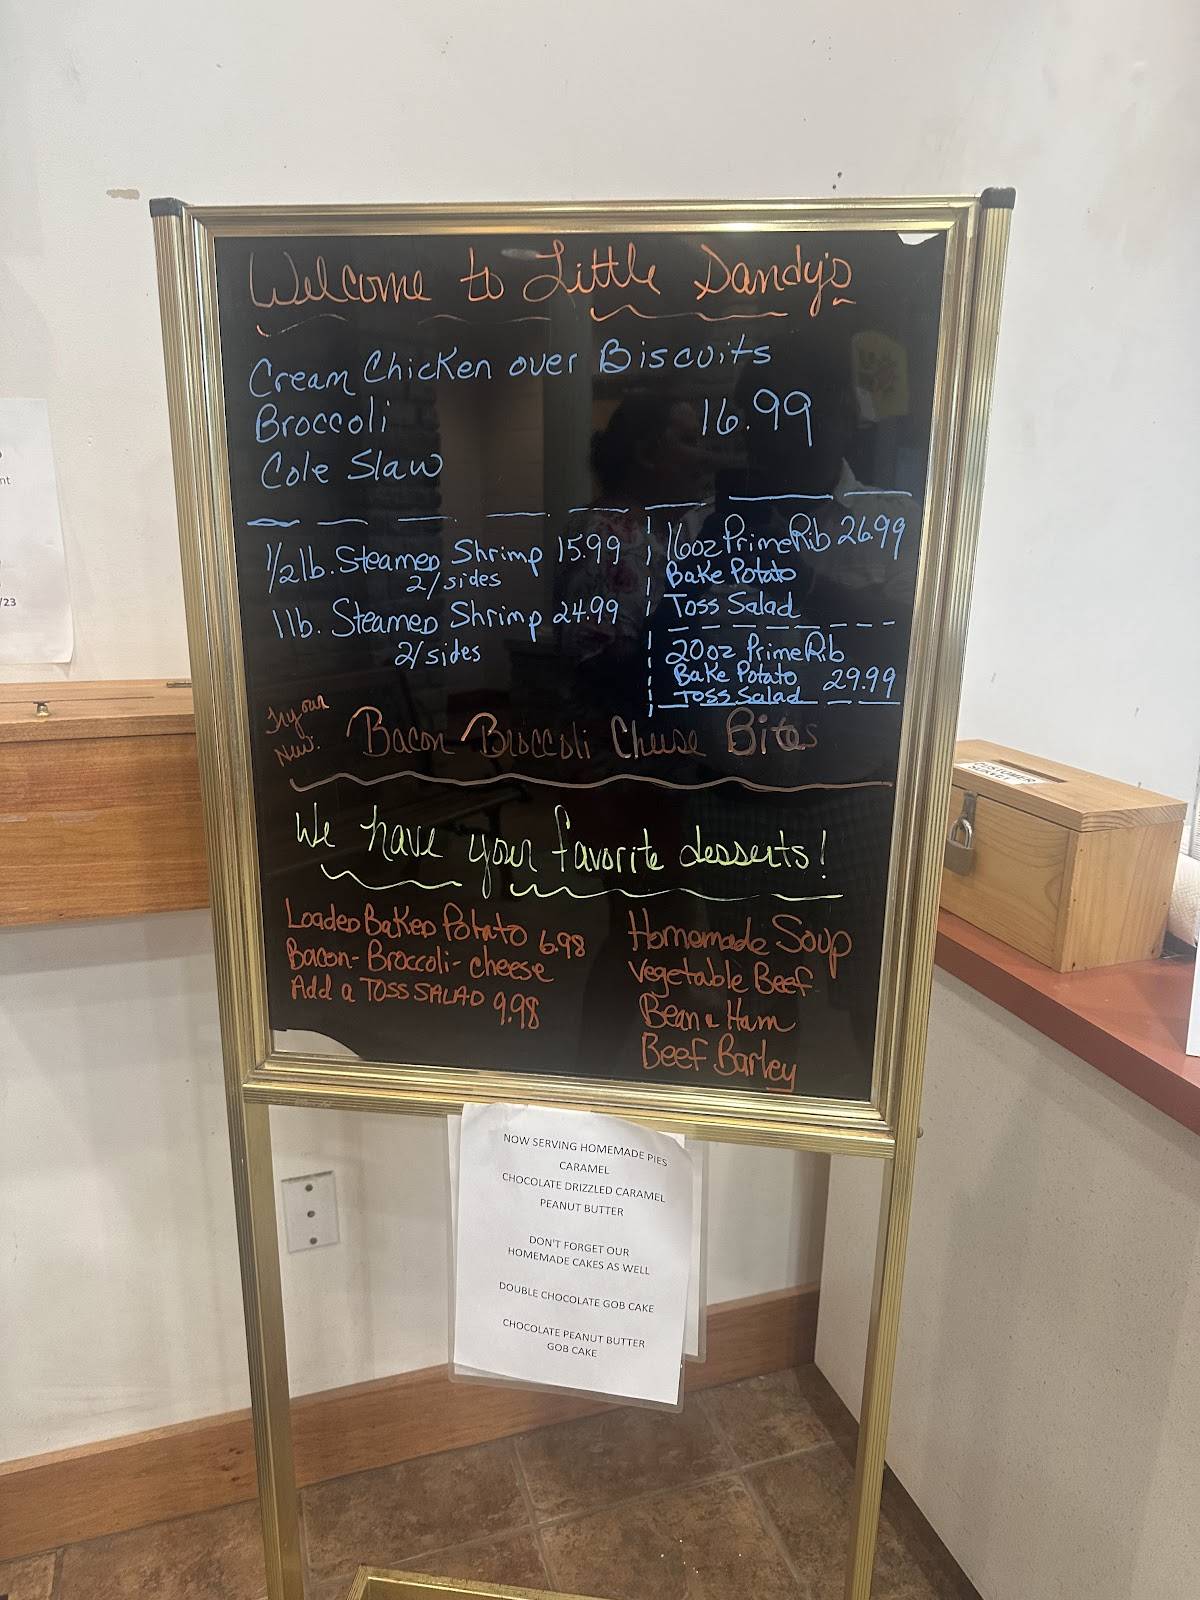 Welcome to Little Dandy's
Cream Chicken over Biscuits
Broccoli 16.99
Cole Slaw
1/2 lb. Steamed Shrimp 15.99
2/sides
1 lb. Steamed Shrimp 24.99
2/sides
16oz Prime Rib 26.99
Bake Potato
Toss Salad
20oz Prime Rib
Bake Potato 29.99
Toss Salad
Try our
New!
Bacon Broccoli Cheese Bites
We have your favorite desserts!
Loaded Baked Potato 6.98
Bacon-Broccoli-cheese
Add a TOSS SALAD 9.98
Homemade Soup
Vegetable Beef
Bean & Ham
Beef Barley
NOW SERVING HOMEMADE PIES
CARAMEL
CHOCOLATE DRIZZLED CARAMEL
PEANUT BUTTER
DON'T FORGET OUR
HOMEMADE CAKES AS WELL
DOUBLE CHOCOLATE GOB CAKE
CHOCOLATE PEANUT BUTTER
GOB CAKE
CUSTOMER
SURVEY
nt
/23